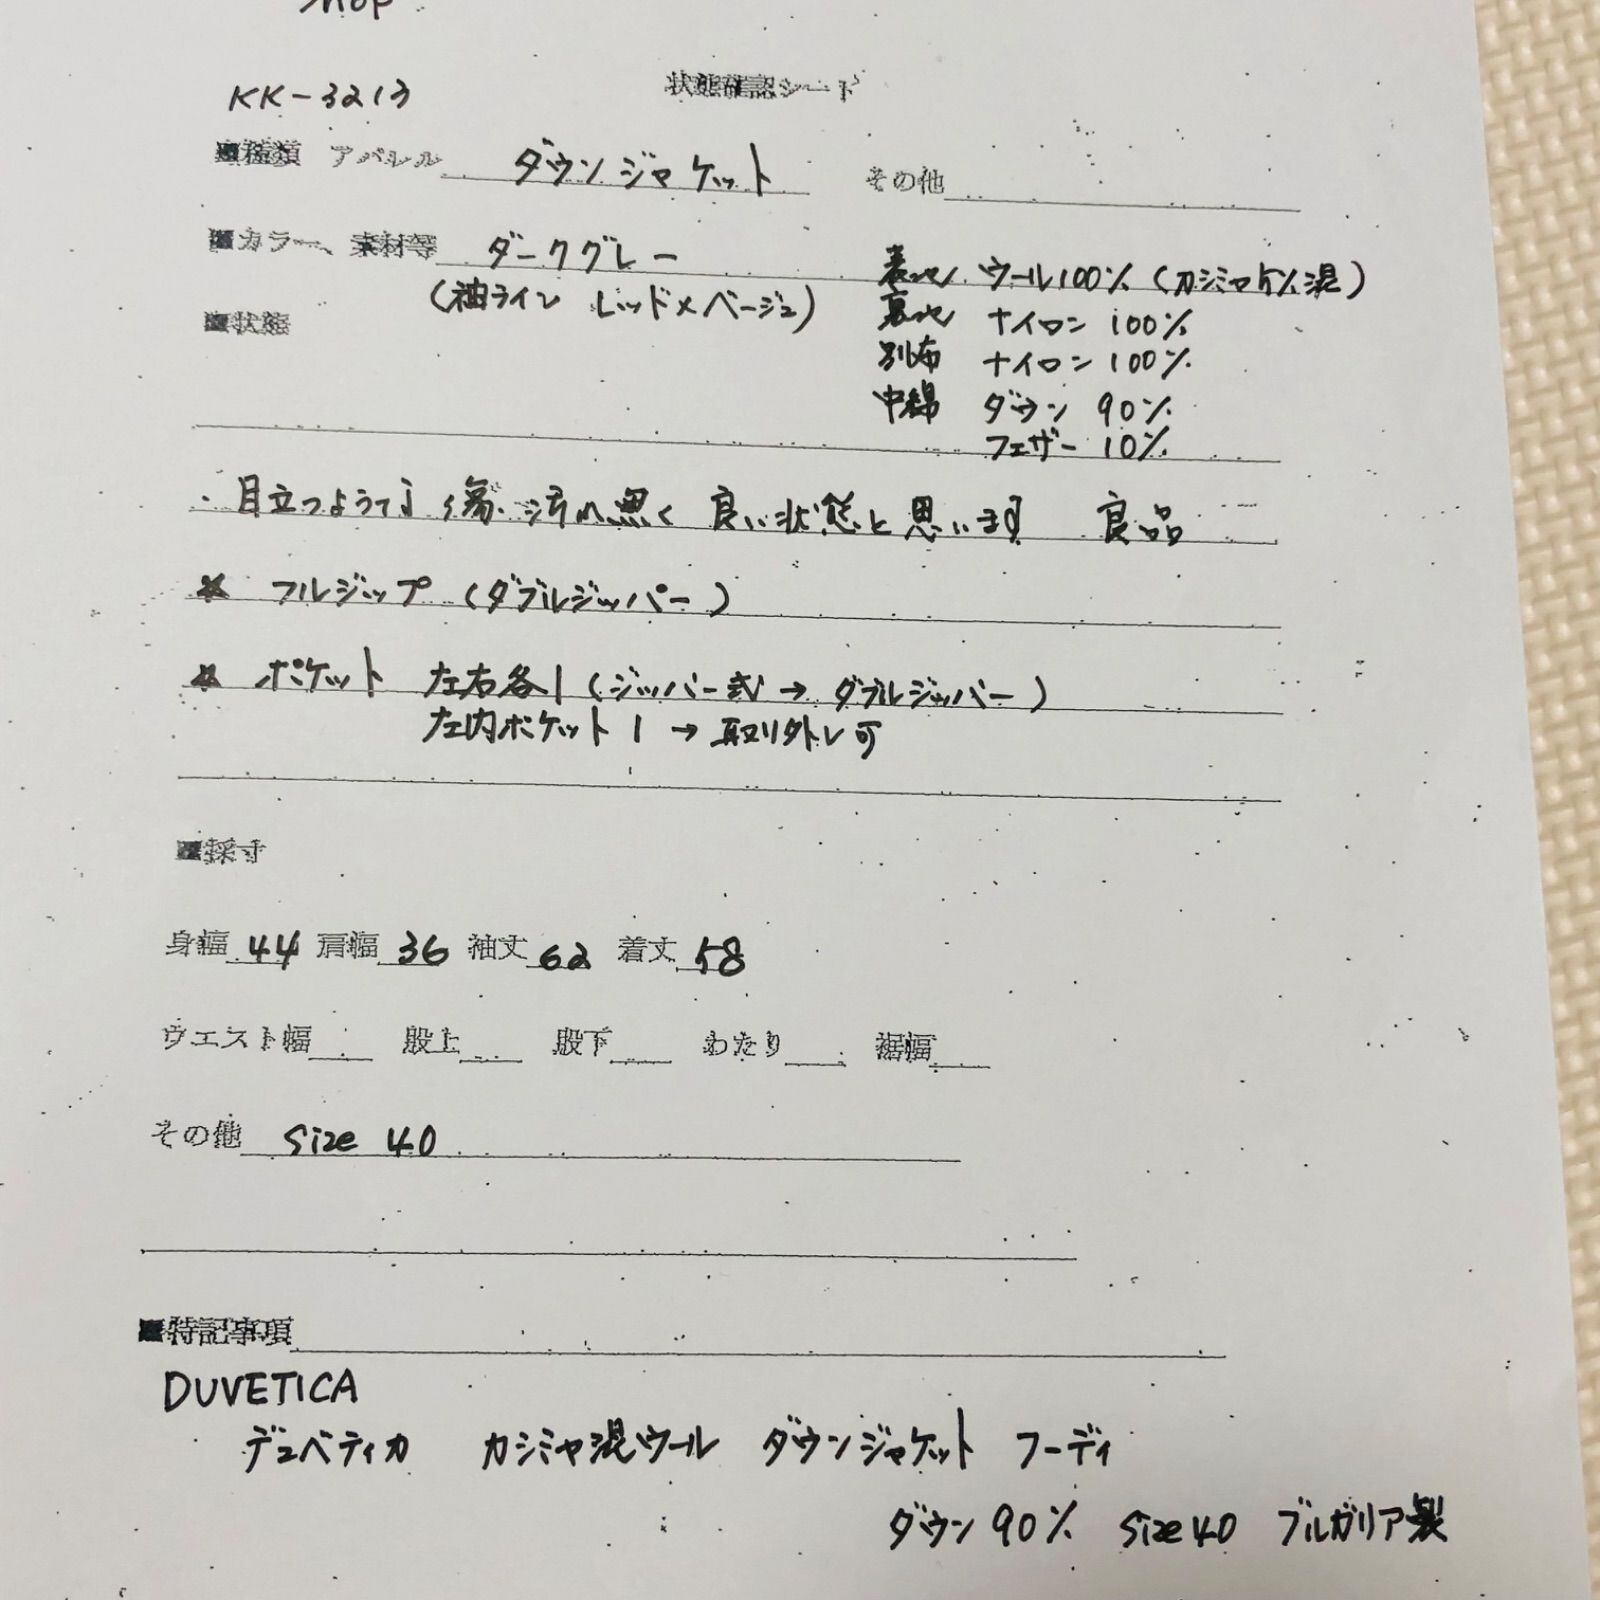 状態確認シート
KK-3213
■種類 アパレル ダウンジャケット その他
■カラー、素材等 ダークグレー
(袖ライン レッド×ベージュ)
表地 ウール100% (カシミヤ5%混)
裏地 ナイロン 100%
別布 ナイロン 100%
中綿 ダウン 90%
フェザー 10%
■状態
・目立つような傷・汚れ無く 良い状態と思います 良品
* フルジップ (ダブルジッパー)
* ポケット 左右各1 (ジッパー式→ダブルジッパー)
左内ポケット 1 → 取り外し可
■採寸
身幅 44 肩幅 36 袖丈 62 着丈 58
ウエスト幅 股上 股下 わたり 裾幅
その他 size 40
■特記事項
DUVETICA
デュベティカ カシミヤ混ウール ダウンジャケット フーディ
ダウン90% size40 ブルガリア製